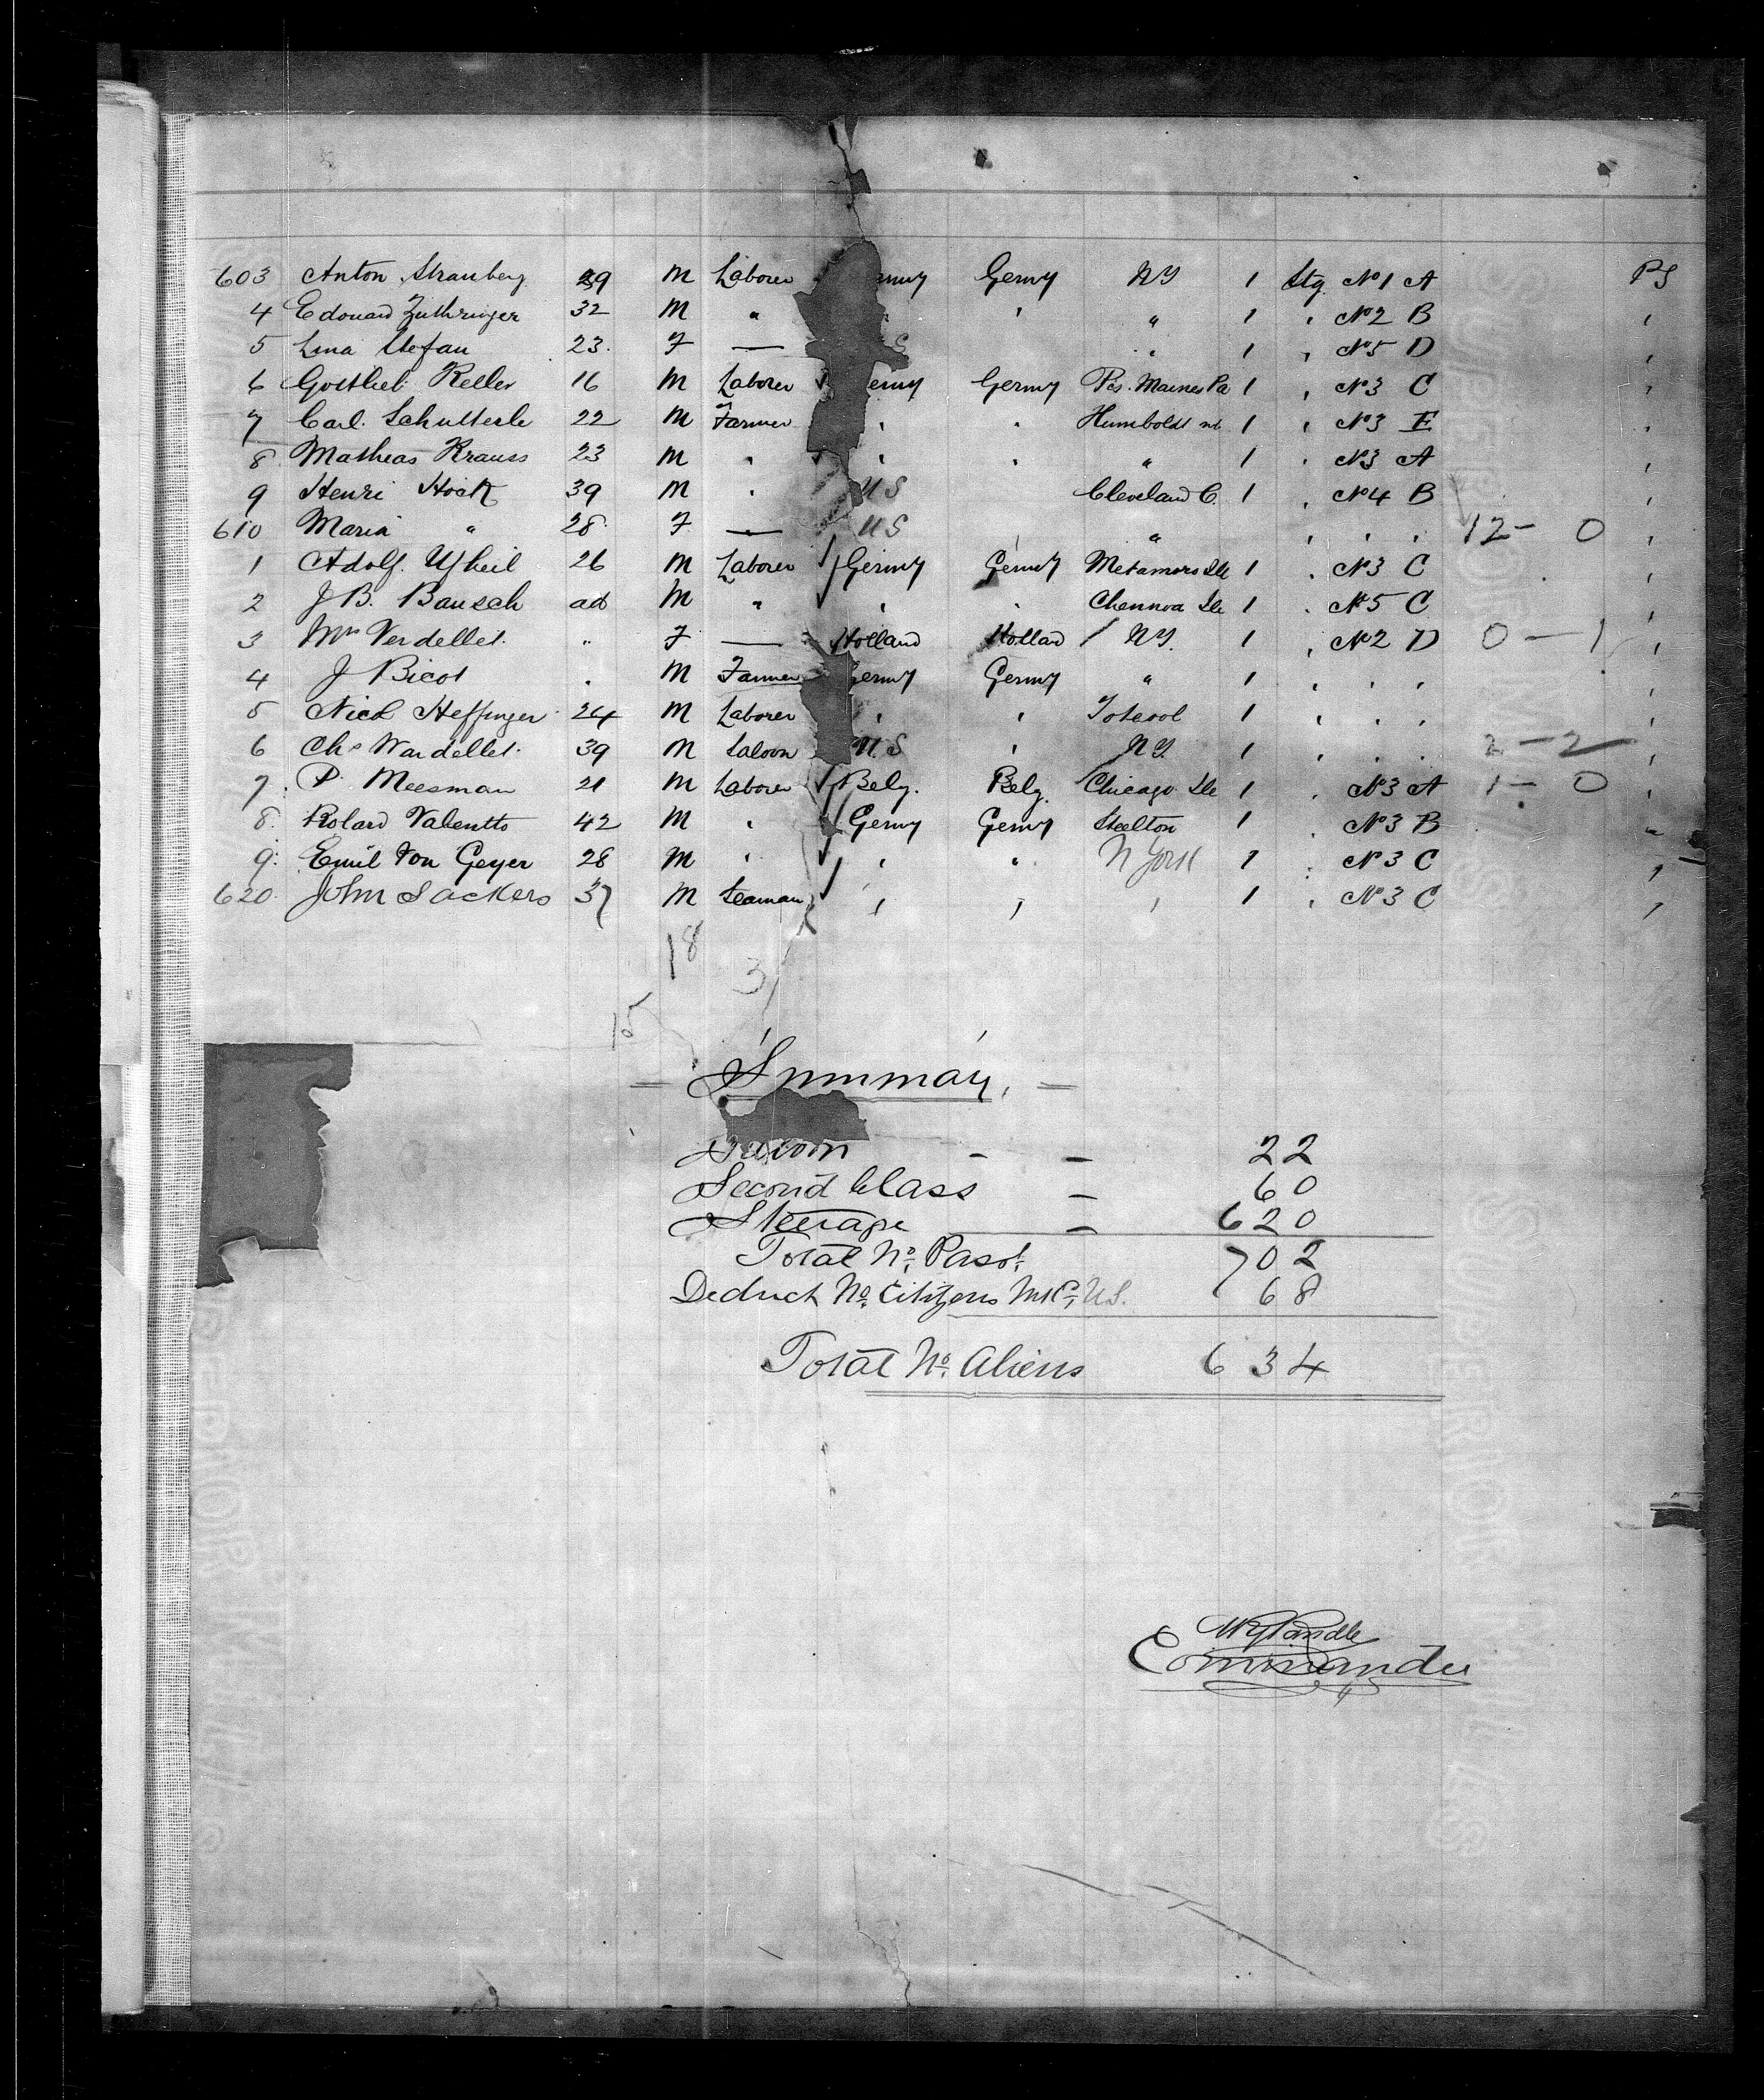 603 Anton Strauberg 39 M Laborer Germy NY 1 Stg No 1 A PS
4 Edouard Zuthringer 32 M " ' " 1 ' No 2 B '
5 Lina Stefan 23 F — S " 1 ' No 5 D '
6 Gottlieb Keller 16 M Laborer Germy 1 ' No 3 C '
7 Carl Schutterle 22 M Farmer ' ' Humboldt 1 ' No 3 E '
8 Mathias Krauss 23 M ' ' ' " 1 ' No 3 A '
9 Henri Hock 39 M ' U S Cleveland O. 1 ' No 4 B '
610 Maria " 28 F — U S " ' ' ' 12 – 0 '
1 Adolf 26 M Laborer Germy Germy Metamora Ill 1 ' No 3 C '
2 J B. Bausch ad M " ' ' Chennoa Ills 1 ' No 5 C '
3 Mrs Verdellet " F — Holland Holland NY. 1 ' No 2 D 0 – 1 '
4 J Bicot ' M Farmer Germy Germy " 1 ' ' ' '
5 Nick Heffinger 24 M Laborer ' ' 1 ' ' ' '
6 Chs Wardellet 39 M Saloon U. S ' NY. 1 ' ' ' 2 – 2 '
7 P. Meesman 21 M Laborer Belg. Belg. Chicago Ills 1 ' No 3 A 1 – 0 '
8 Roland Valentto 42 M ' Germy Germy Steelton 1 ' No 3 B "
9 Emil Von Geyer 28 M ' ' ' N York 1 ' No 3 C '
620 John Sackers 37 M Seaman ' ' ' 1 ' No 3 C '
18
3
15
— Summary. —
Saloon – – 22
Second Class – 60
Steerage – 620
Total No. Passr. 702
Deduct No. Citizens U.S. 68
Total No. Aliens 634
Commander